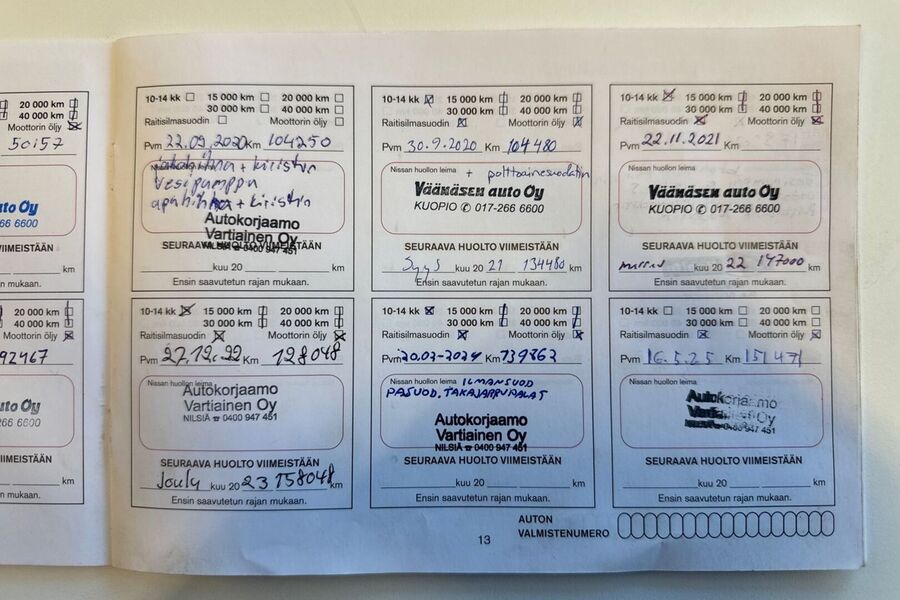 20 000 km
40 000 km
Moottorin öljy
50157
uto Oy
66 6600
km
mukaan.
20 000 km
40 000 km
Moottorin öljy
92467
uto Oy
66 6600
km
mukaan.
10-14 kk 15 000 km 20 000 km
30 000 km 40 000 km
Raitisilmasuodin Moottorin öljy
Pvm 22.09.2020 Km 104250
+ kiristys
Vesipumppu
apuhihna + kiristin
Autokorjaamo
Vartiainen Oy
☎ 0400 947 451
SEURAAVA HUOLTO VIIMEISTÄÄN
kuu 20 km
Ensin saavutetun rajan mukaan.
10-14 kk 15 000 km 20 000 km
30 000 km 40 000 km
Raitisilmasuodin Moottorin öljy
Pvm 30.9.2020 Km 104480
Nissan huollon leima + polttoainesuodatin
Väänäsen auto Oy
KUOPIO ✆ 017-266 6600
SEURAAVA HUOLTO VIIMEISTÄÄN
Syys kuu 20 21 134480 km
Ensin saavutetun rajan mukaan.
10-14 kk 15 000 km 20 000 km
30 000 km 40 000 km
Raitisilmasuodin Moottorin öljy
Pvm 22.11.2021 Km
Nissan huollon leima
Väänäsen auto Oy
KUOPIO ✆ 017-266 6600
SEURAAVA HUOLTO VIIMEISTÄÄN
marras kuu 20 22 147000 km
Ensin saavutetun rajan mukaan.
10-14 kk 15 000 km 20 000 km
30 000 km 40 000 km
Raitisilmasuodin Moottorin öljy
Pvm 27.12.22 Km 128048
Nissan huollon leima
Autokorjaamo
Vartiainen Oy
NILSIÄ ☎ 0400 947 451
SEURAAVA HUOLTO VIIMEISTÄÄN
Joulu kuu 20 23 158048 km
Ensin saavutetun rajan mukaan.
10-14 kk 15 000 km 20 000 km
30 000 km 40 000 km
Raitisilmasuodin Moottorin öljy
Pvm 20.02-2024 Km 139862
Nissan huollon leima ILMANSUOD
PASUOD. TAKAJARRUPALAT
Autokorjaamo
Vartiainen Oy
NILSIÄ ☎ 0400 947 451
SEURAAVA HUOLTO VIIMEISTÄÄN
kuu 20 km
Ensin saavutetun rajan mukaan.
10-14 kk 15 000 km 20 000 km
30 000 km 40 000 km
Raitisilmasuodin Moottorin öljy
Pvm 16.5.25 Km 151471
Nissan huollon leima
Autokorjaamo
Vartiainen Oy
☎ 0400 947 451
SEURAAVA HUOLTO VIIMEISTÄÄN
kuu 20 km
Ensin saavutetun rajan mukaan.
13
AUTON
VALMISTENUMERO